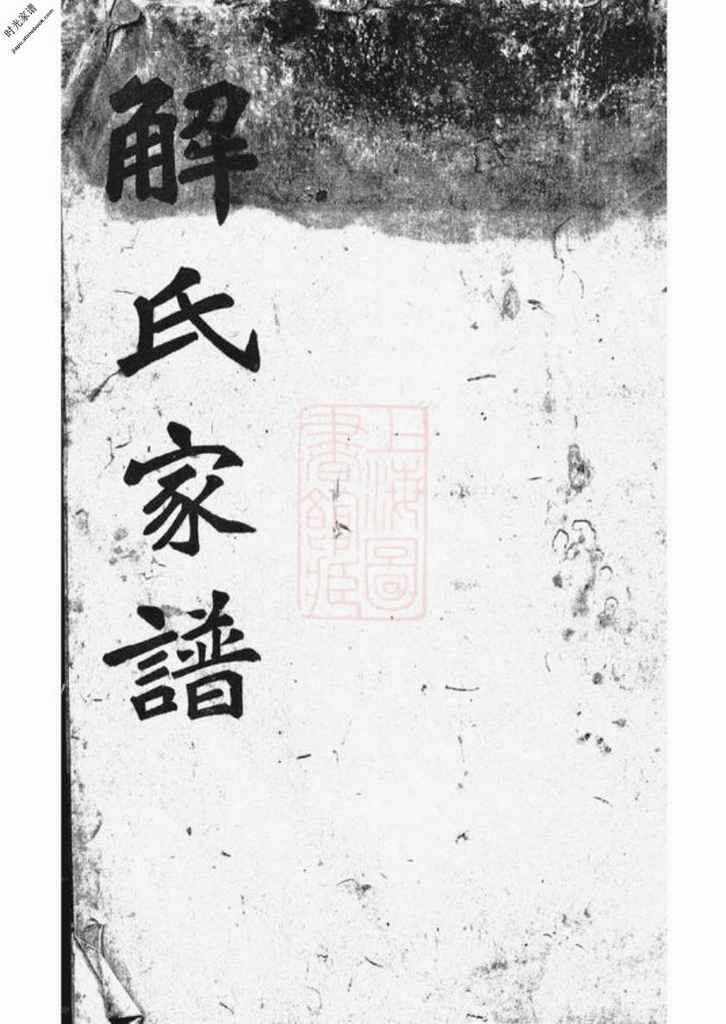 时光家谱
jiapu.aitimebook.com
解氏家譜
上海圖
書館藏